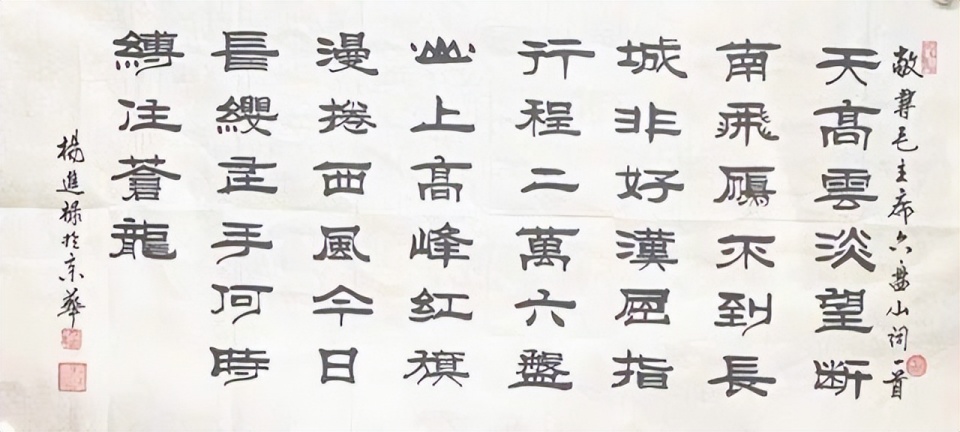 敬毛主席六盘山词一首
天髙雲淡望断
南飛鴈不到長
城非好漢屈指
行程二萬六盤
山上髙峰紅旗
漫捲西風今日
長纓在手何時
縛住蒼龍
楊進禄於京華